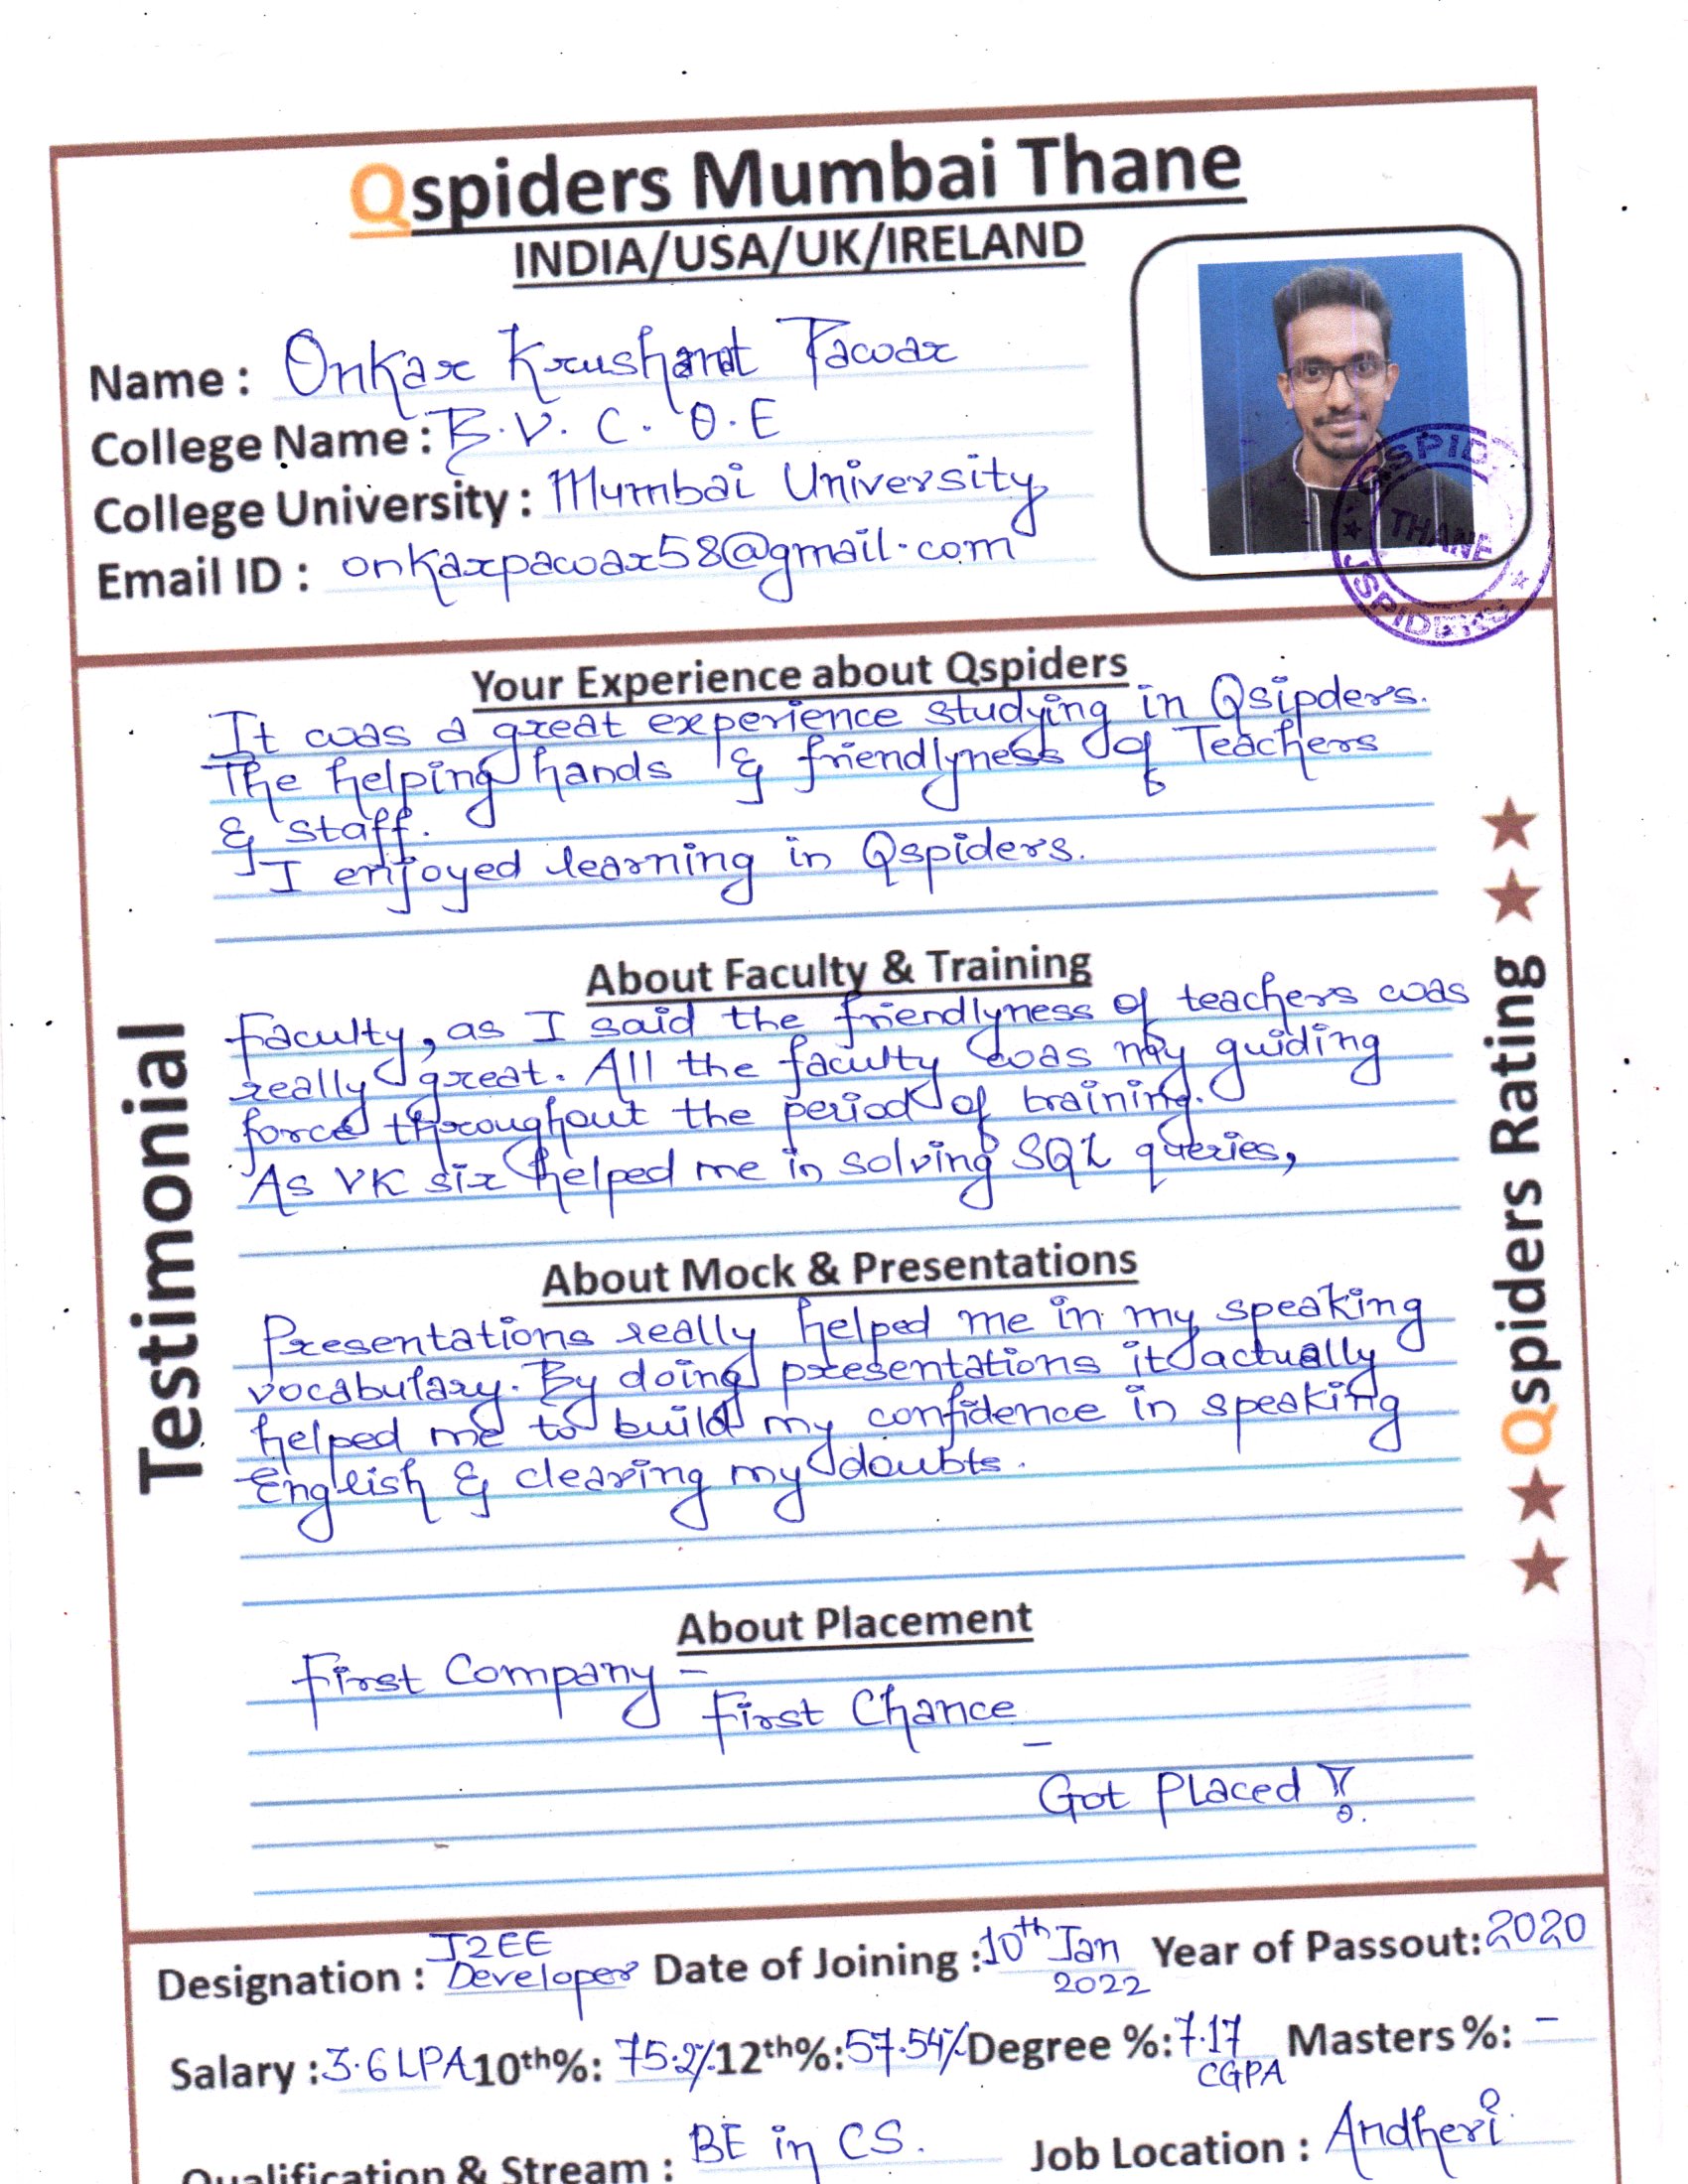 Qspiders Mumbai Thane
INDIA/USA/UK/IRELAND
Name : Onkar Krushant Pawar
College Name : B.V.C.O.E
College University : Mumbai University
Email ID : onkarpawar58@gmail.com
QSPID
THANE
JSPIDERS
Your Experience about Qspiders
It was a great experience studying in Qsipders.
The helping hands & friendlyness of Teachers
& staff.
I enjoyed learning in Qspiders.
About Faculty & Training
Faculty, as I said the friendlyness of teachers was
really great. All the faculty was my guiding
force throughout the period of training.
As VK sir helped me in solving SQL queries,
About Mock & Presentations
Presentations really helped me in my speaking
vocabulary. By doing presentations it actually
helped me to build my confidence in speaking
English & clearing my doubts.
About Placement
First Company -
First Chance -
Got Placed !
Testimonial
Qspiders Rating
Designation : J2EE Developer Date of Joining : 10th Jan 2022 Year of Passout: 2020
Salary : 3.6 LPA 10th%: 75.2% 12th%: 57.54% Degree %: 7.17 CGPA Masters %: -
Qualification & Stream : BE in CS. Job Location : Andheri